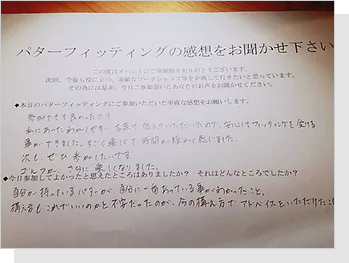 パターフィッティングの感想をお聞かせ下さい
この度はイベントにご参加頂きありがとうございます。
次回、今後も役に立つ、素敵なワークショップ等を企画して行きたいと思っています。
その為には是非、今日ご参加頂いたあなたのお声をお聞かせください。
◆本日のパターフィッティングにご参加いただいた率直な感想をお願いします。
参加できて良かったです
私にあった わかりやすい 言葉で 伝えていただいたので、安心してフィッティングを受ける
事ができました。すごく楽しくて 時間が短かく感じました。
次も、ぜひ 参加したいです。
ゴルフが さらに 楽しくなりました。
◆今日参加してよかったと思えたところはありましたか? それはどんなところでしたか?
自分が持っているパターが、自分に一番あっている事がわかったこと。
構え方も これでいいのかと 不安だったのが、今の構え方で アドバイスを いただけたこと